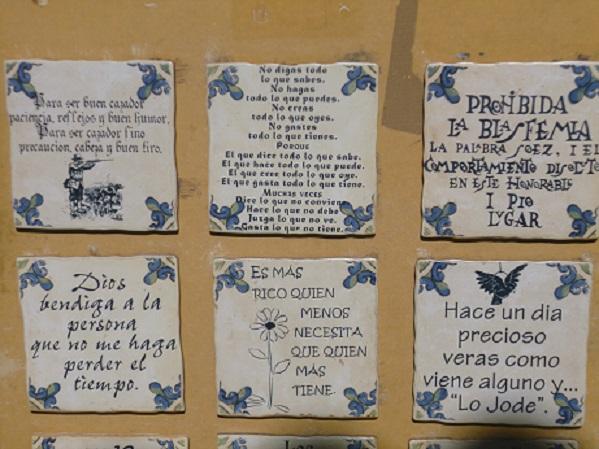 Para ser buen cazador
paciencia, reflejos y buen humor,
Para ser cazador fino
precaucion, cabeza y buen tiro.
No digas todo
lo que sabes.
No hagas
todo lo que puedes.
No creas
todo lo que oyes.
No gastes
todo lo que tienes.
PORQUE
El que dice todo lo que sabe.
El que hace todo lo que puede.
El que cree todo lo que oye.
El que gasta todo lo que tiene.
MUCHAS VECES
Dice lo que no conviene
Hace lo que no debe
Juzga lo que no ve.
Gasta lo que no tiene.
PROHIBIDA
LA BLASFEMIA
LA PALABRA SOEZ, I EL
COMPORTAMIENTO DISCOLO
EN ESTE HONORABLE
I PIO
LUGAR
Dios
bendiga a la
persona
que no me haga
perder el
tiempo.
ES MAS
RICO QUIEN
MENOS
NECESITA
QUE QUIEN
MAS
TIENE.
Hace un dia
precioso
veras como
viene alguno y...
"Lo Jode".